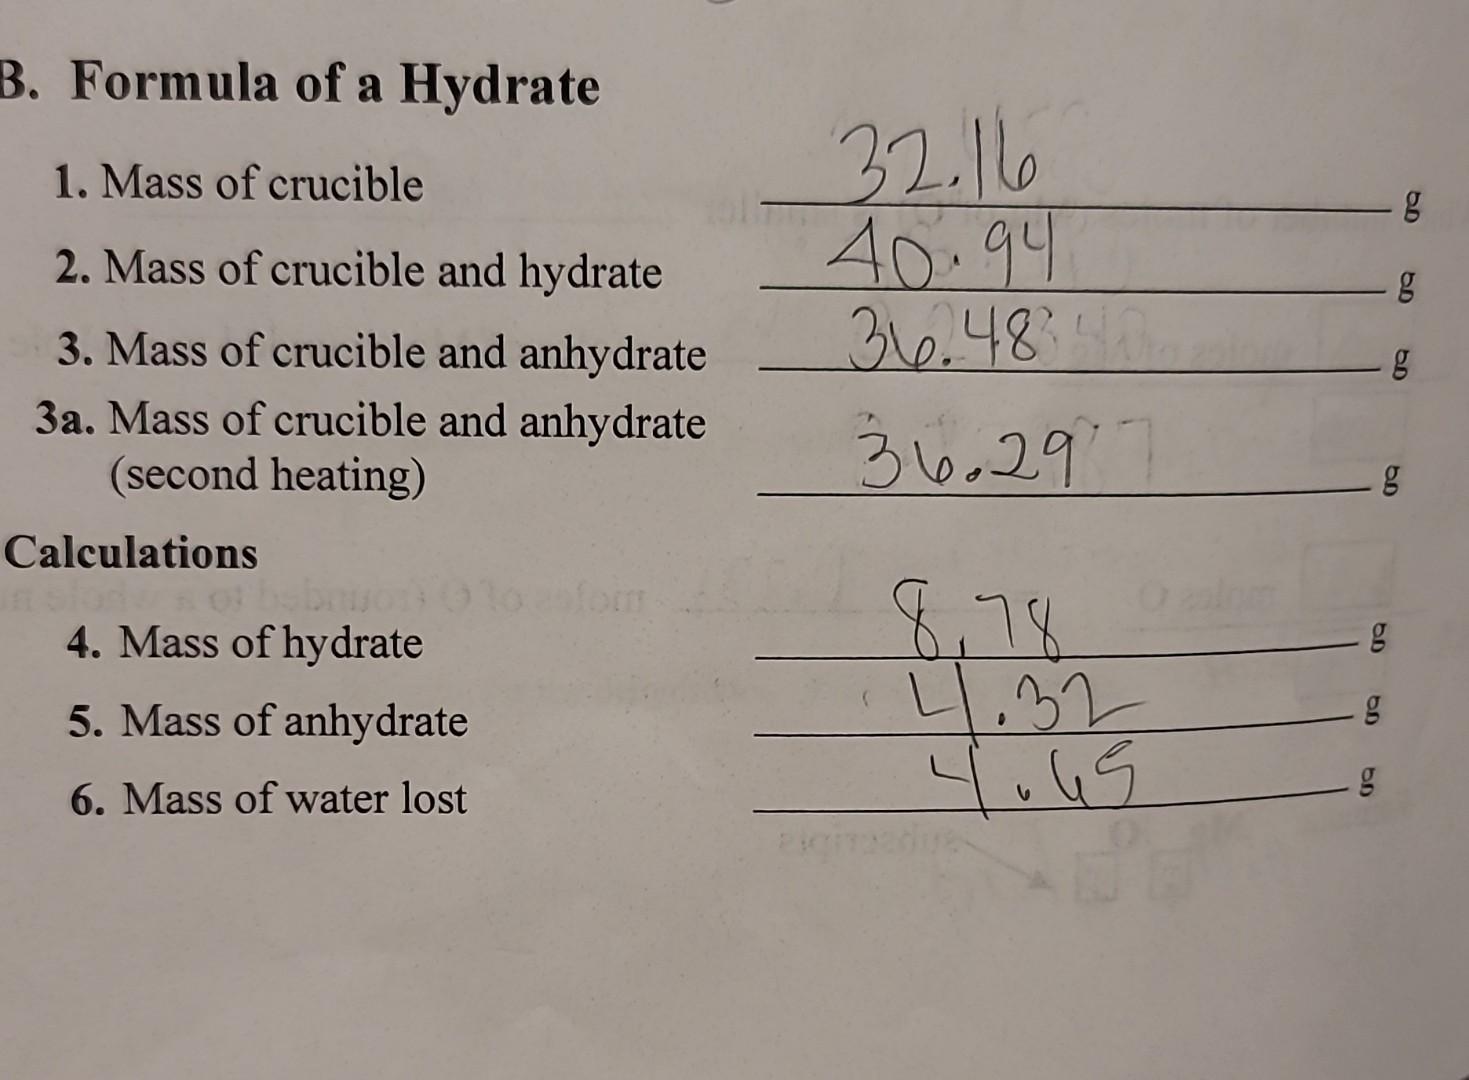 B. Formula of a Hydrate
1. Mass of crucible 32.16 g
2. Mass of crucible and hydrate 40.94 g
3. Mass of crucible and anhydrate 36.48 g
3a. Mass of crucible and anhydrate
(second heating) 36.29 g
Calculations
4. Mass of hydrate 8.78 g
5. Mass of anhydrate 4.32 g
6. Mass of water lost 4.65 g
moles O
moles of O (rounded to a whole n
subscripts
Mg O